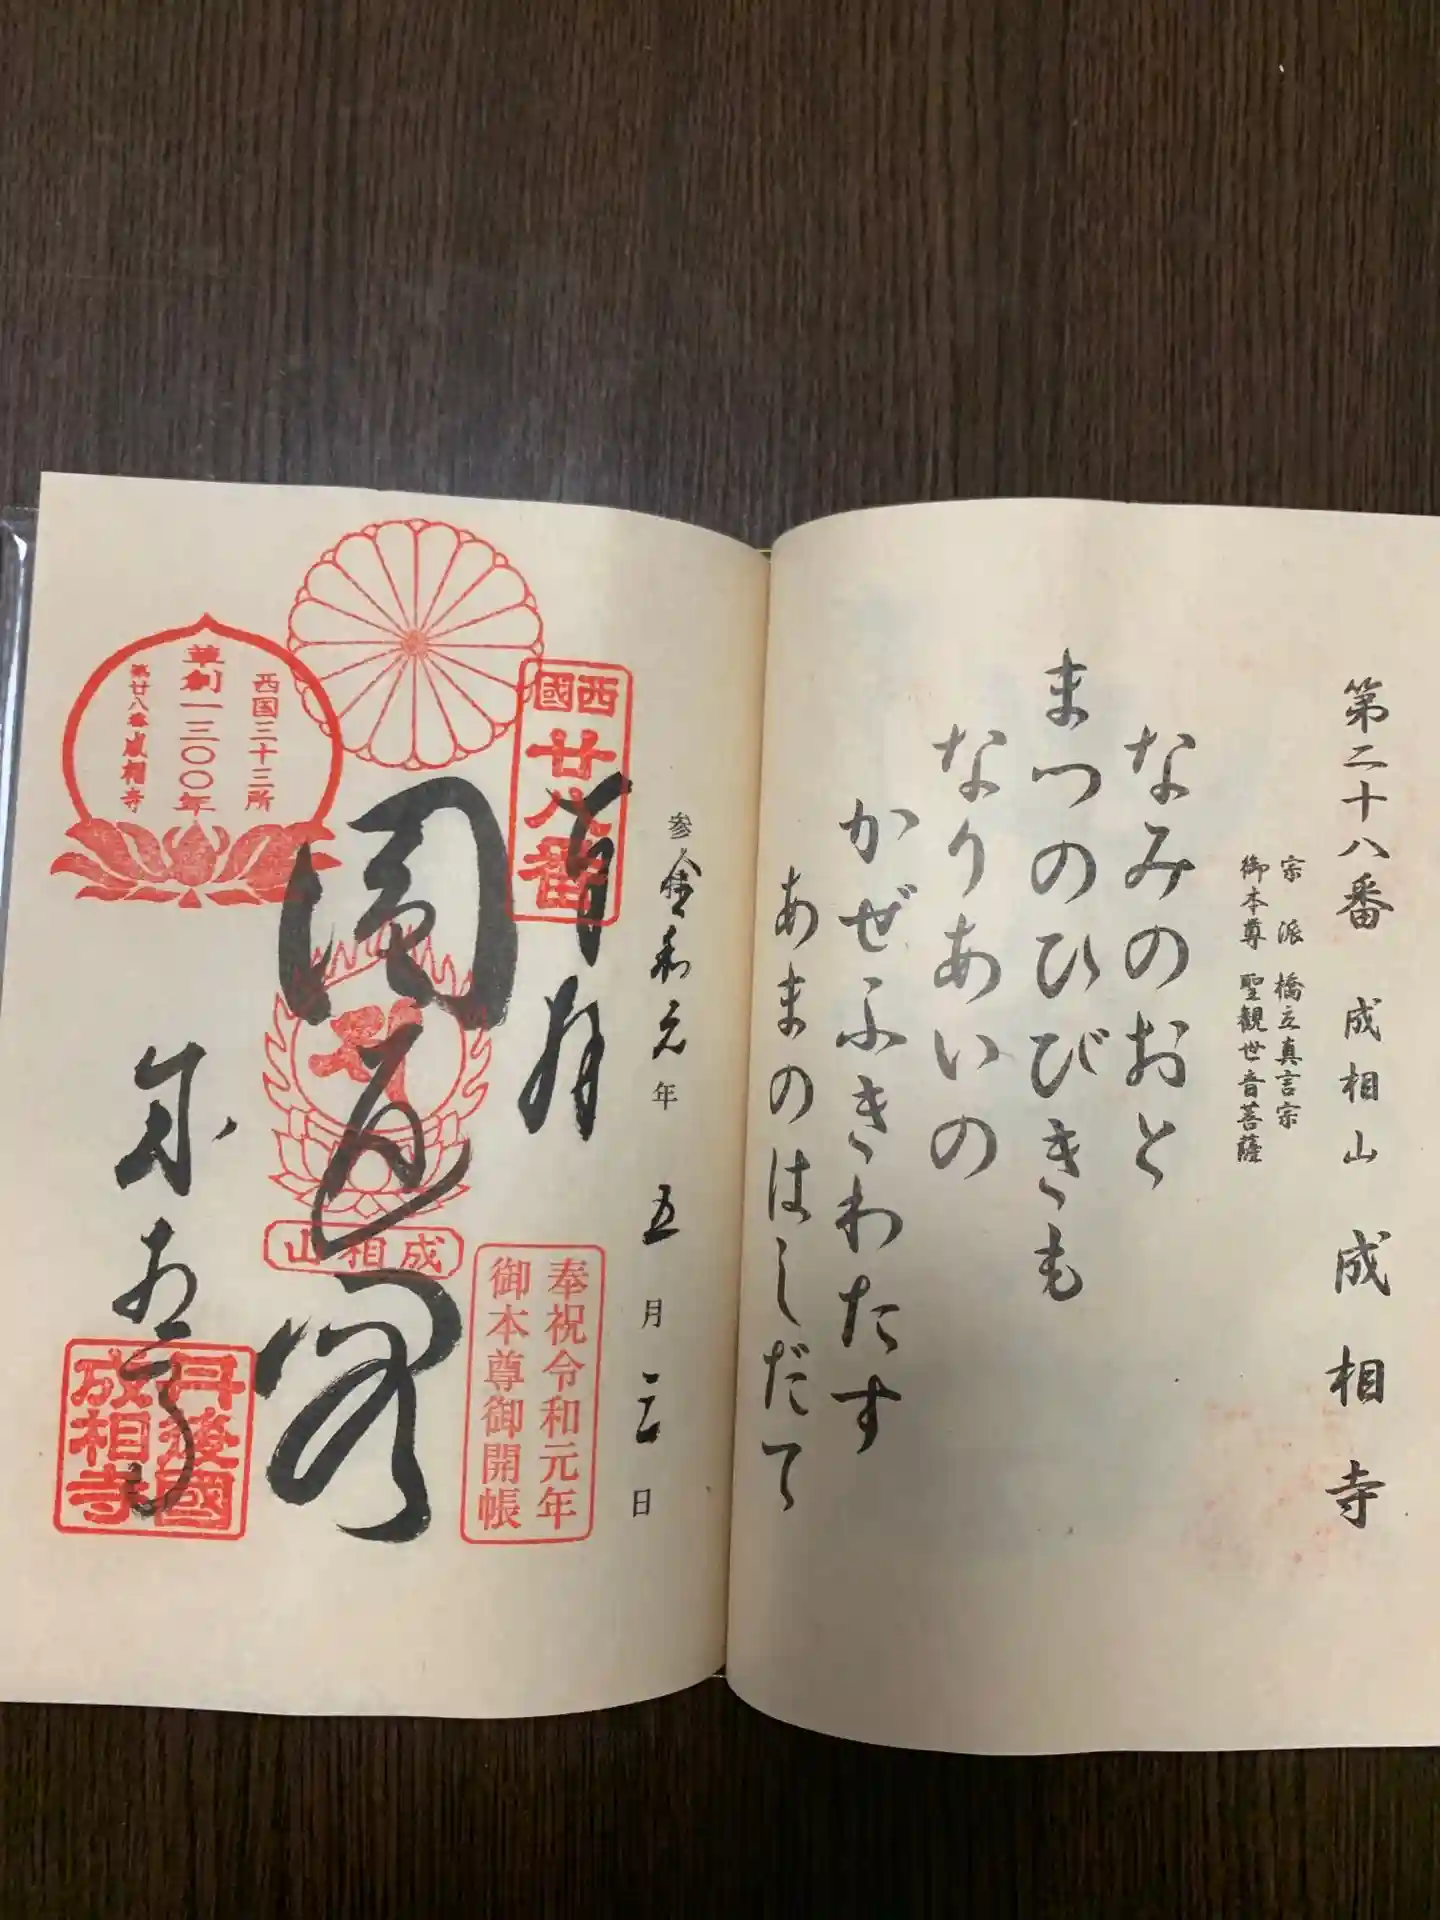 第二十八番 成相山 成相寺
宗派 橋立真言宗
御本尊 聖観世音菩薩
なみのおと
まつのひびきも
なりあいの
かぜふきわたす
あまのはしだて
参 令和元年 五月 二日
奉拝
西國
廿八番
圓通閣
成相山
奉祝令和元年
御本尊御開帳
西国三十三所
草創一三〇〇年
第廿八番 成相寺
成相寺
丹後國
成相寺